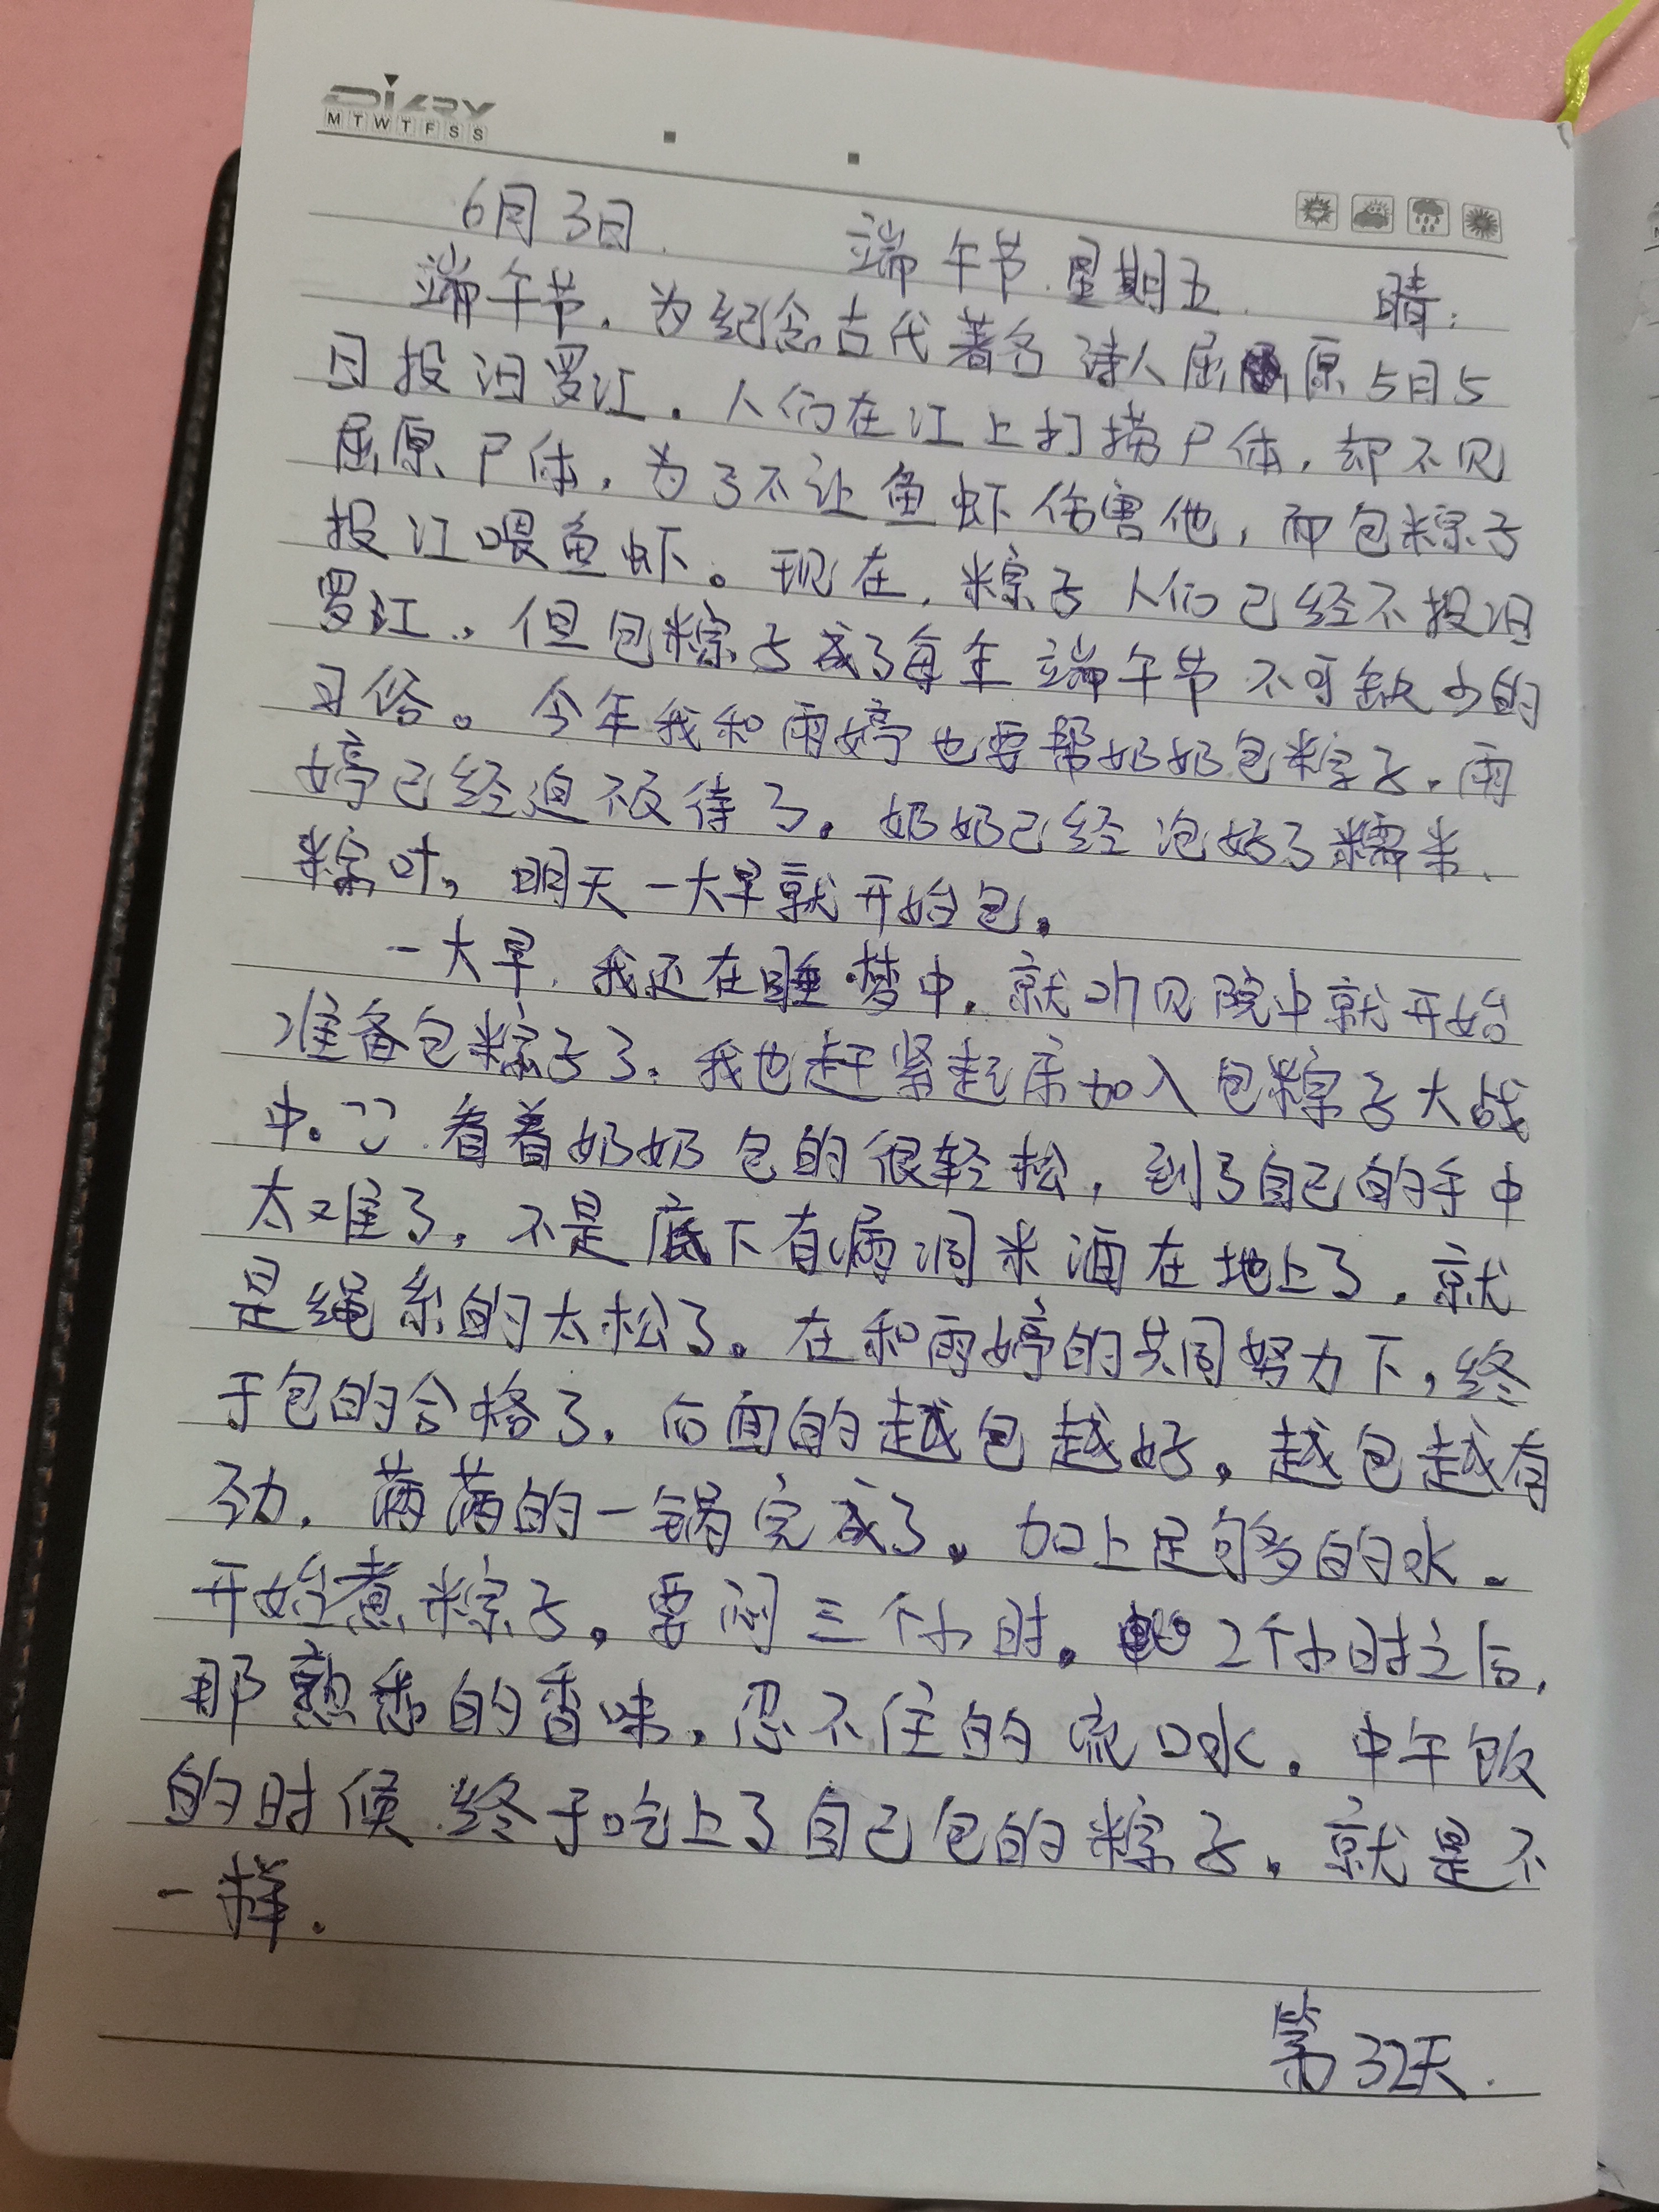 DIARY
M T W T F S S
6月3日. 端午节.星期五. 晴.
端午节.为纪念古代著名诗人屈原5月5
日投汨罗江.人们在江上打捞尸体,却不见
屈原尸体,为了不让鱼虾伤害他,而包粽子
投江喂鱼虾。现在,粽子人们已经不投汨
罗江.,但包粽子成了每年端午节不可缺少的
习俗。今年我和雨婷也要帮奶奶包粽子.雨
婷已经迫不及待了。奶奶已经泡好了糯米、
粽叶,明天一大早就开始包.
一大早,我还在睡梦中.就听见院中就开始
准备包粽子了.我也赶紧起床加入包粽子大战
中。看着奶奶包的很轻松,到了自己的手中
太难了,不是底下有漏洞米洒在地上了,就
是绳系的太松了。在和雨婷的共同努力下,终
于包的合格了.后面的越包越好,越包越有
劲,满满的一锅完成了。加上足够多的水.
开始煮粽子。要闷三个小时。2个小时之后,
那熟悉的香味,忍不住的流口水.中午饭
的时候.终于吃上了自己包的粽子.就是不
一样.
第32天.